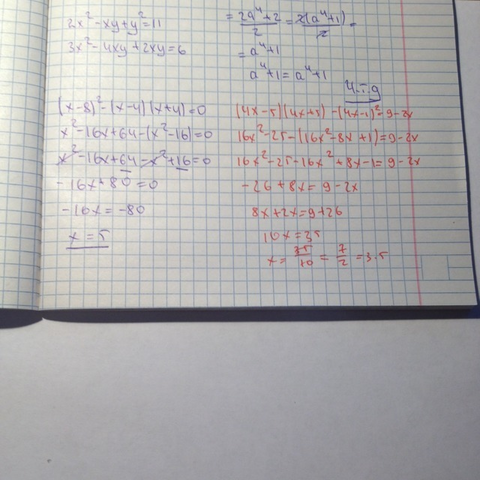 2x² - xy + y² = 11
3x² - 4xy + 2xy = 6
= 2a⁴+2/2 = 2(a⁴+1)/2 =
= a⁴+1
a⁴+1 = a⁴+1
ч.т.д
(x-8)² - (x-4)(x+4) = 0
x² - 16x + 64 - (x² - 16) = 0
x² - 16x + 64 - x² + 16 = 0
- 16x + 80 = 0
- 16x = -80
x = 5
(4x-5)(4x+5) - (4x-1)² = 9 - 2x
16x² - 25 - (16x² - 8x + 1) = 9 - 2x
16x² - 25 - 16x² + 8x - 1 = 9 - 2x
- 26 + 8x = 9 - 2x
8x + 2x = 9 + 26
10x = 35
x = 35/10 = 7/2 = 3.5